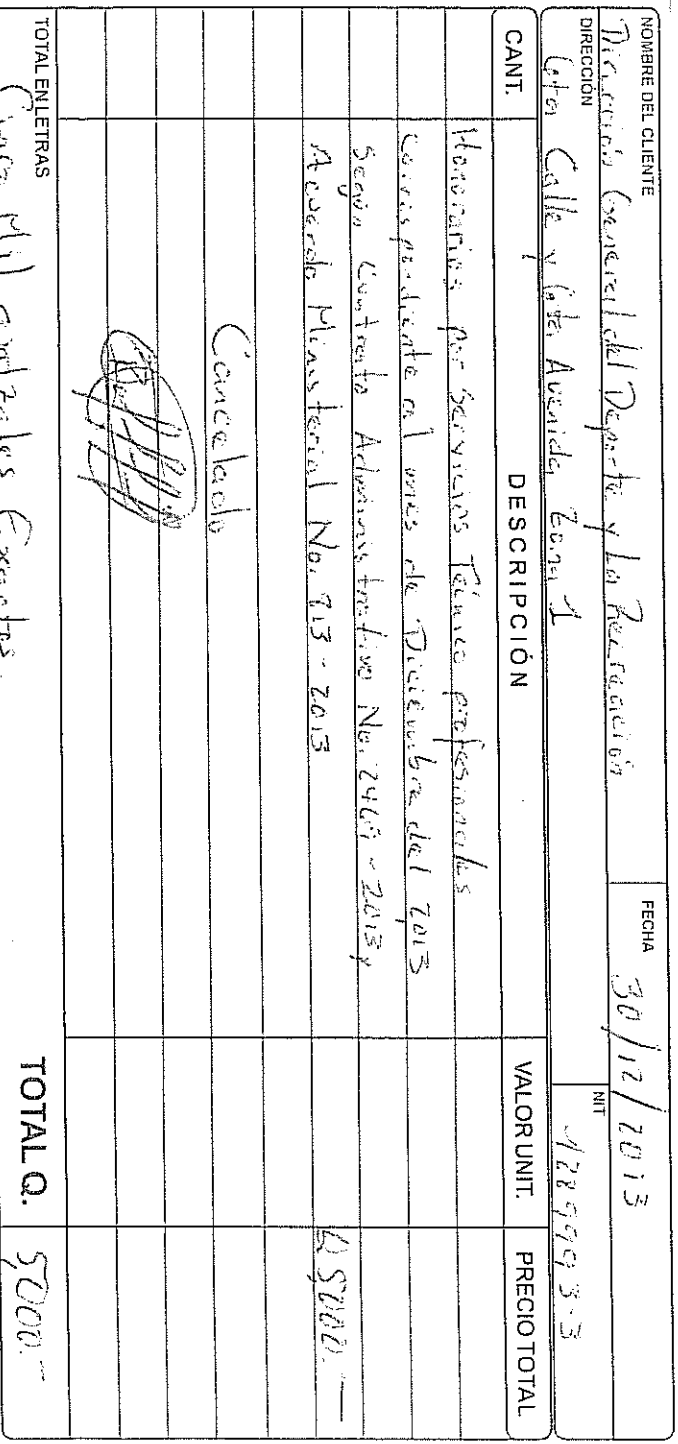 NOMBRE DEL CLIENTE
Dirección General del Deporte y La Recreación
FECHA 30/12/2013
DIRECCIÓN
6ta Calle y 6ta Avenida Zona 1
NIT
1289993-3
CANT. DESCRIPCIÓN VALOR UNIT. PRECIO TOTAL
Honorarios por Servicios Técnico profesionales
correspondiente al mes de Diciembre del 2013
Según Contrato Administrativo No. 2469-2013 y
Acuerdo Ministerial No. 913-2013 Q 5,000.—
Cancelado
TOTAL EN LETRAS
Cinco Mil quetzales Exactos.
TOTAL Q. 5,000.—